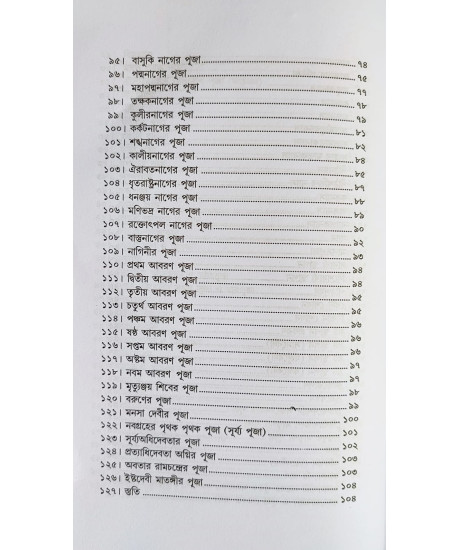 ৯৫। বাসুকি নাগের পূজা ৭৪
৯৬। পদ্মনাগের পূজা ৭৫
৯৭। মহাপদ্মনাগের পূজা ৭৭
৯৮। তক্ষকনাগের পূজা ৭৮
৯৯। কুলীরনাগের পূজা ৭৯
১০০। কর্কটনাগের পূজা ৮১
১০১। শঙ্খনাগের পূজা ৮২
১০২। কালীয়নাগের পূজা ৮৪
১০৩। ঐরাবতনাগের পূজা ৮৫
১০৪। ধৃতরাষ্ট্রনাগের পূজা ৮৭
১০৫। ধনঞ্জয় নাগের পূজা ৮৮
১০৬। মণিভদ্র নাগের পূজা ৮৯
১০৭। রক্তোৎপল নাগের পূজা ৯০
১০৮। বাস্তুনাগের পূজা ৯২
১০৯। নাগিনীর পূজা ৯৩
১১০। প্রথম আবরণ পূজা ৯৪
১১১। দ্বিতীয় আবরণ পূজা ৯৪
১১২। তৃতীয় আবরণ পূজা ৯৫
১১৩। চতুর্থ আবরণ পূজা ৯৫
১১৪। পঞ্চম আবরণ পূজা ৯৬
১১৫। ষষ্ঠ আবরণ পূজা ৯৬
১১৬। সপ্তম আবরণ পূজা ৯৬
১১৭। অষ্টম আবরণ পূজা ৯৭
১১৮। নবম আবরণ পূজা ৯৭
১১৯। মৃত্যুঞ্জয় শিবের পূজা ৯৮
১২০। বরুণের পূজা ৯৯
১২১। মনসা দেবীর পূজা ১০০
১২২। নবগ্রহের পৃথক পৃথক পূজা (সূর্য্য পূজা) ১০১
১২৩। সূর্য্যঅধিদেবতার পূজা ১০২
১২৪। প্রত্যাধিদেবতা অগ্নির পূজা ১০৩
১২৫। অবতার রামচন্দ্রের পূজা ১০৩
১২৬। ইষ্টদেবী মাতঙ্গীর পূজা ১০৪
১২৭। স্তুতি ১০৪